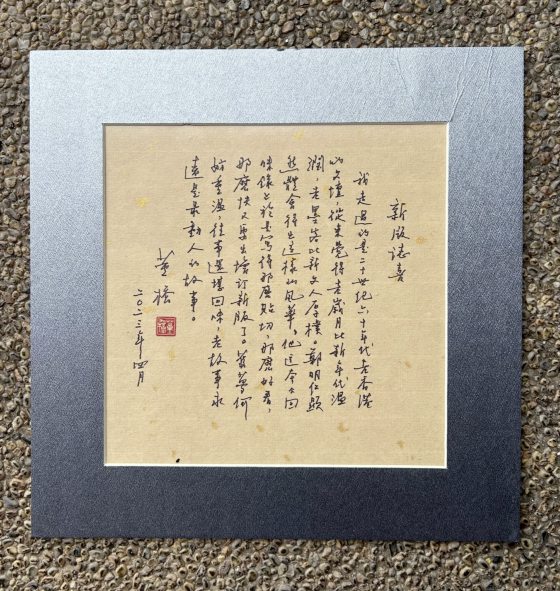 新版誌喜
我走過的是二十世紀六十年代老香港
的文壇，從來覺得老歲月比新年代溫
潤，老墨客比新文人厚樸。鄭明仁顯
然體會得出這樣的風華，他這本《回
味錄》於是寫得那麼貼切，那麼好看，
那麼快又要出增訂新版了。舊夢何
妨重溫，往事還堪回味，老故事永
遠是最動人的故事。
董橋
二〇二三年四月